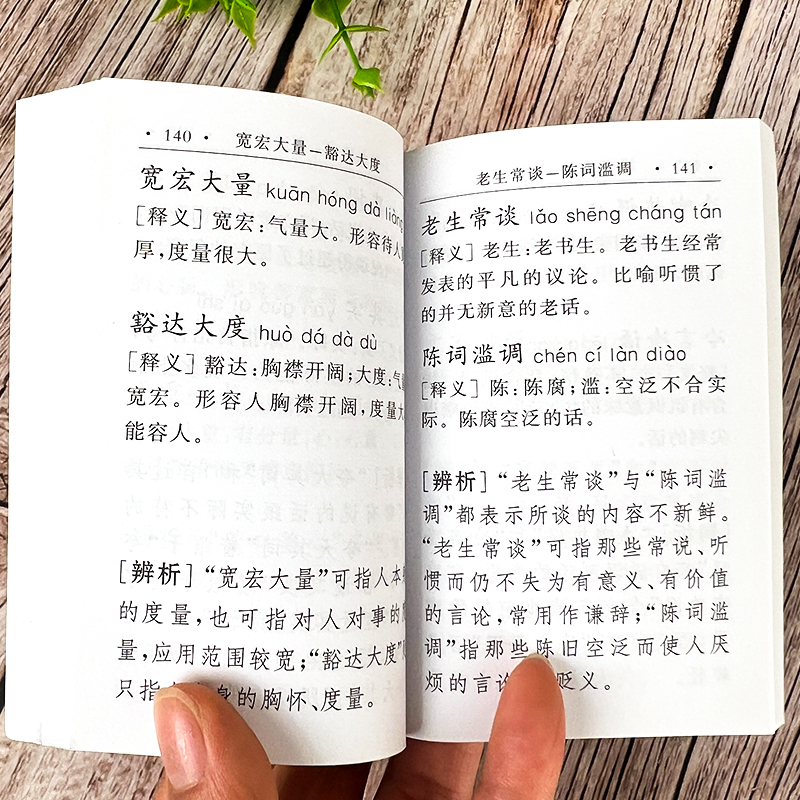 · 140 · 宽宏大量—豁达大度
宽宏大量 kuān hóng dà liàng
[释义] 宽宏:气量大。形容待人
厚,度量很大。
豁达大度 huò dá dà dù
[释义] 豁达:胸襟开阔;大度:气
宽宏。形容人胸襟开阔,度量大
能容人。
[辨析] “宽宏大量”可指人本
的度量,也可指对人对事的
量,应用范围较宽;“豁达大度”
只指 身的胸怀、度量。
老生常谈—陈词滥调 · 141 ·
老生常谈 lǎo shēng cháng tán
[释义] 老生:老书生。老书生经常
发表的平凡的议论。比喻听惯了
的并无新意的老话。
陈词滥调 chén cí làn diào
[释义] 陈:陈腐;滥:空泛不合实
际。陈腐空泛的话。
[辨析] “老生常谈”与“陈词滥
调”都表示所谈的内容不新鲜。
“老生常谈”可指那些常说、听
惯而仍不失为有意义、有价值
的言论,常用作谦辞;“陈词滥
调”指那些陈旧空泛而使人厌
烦的言论 贬义。